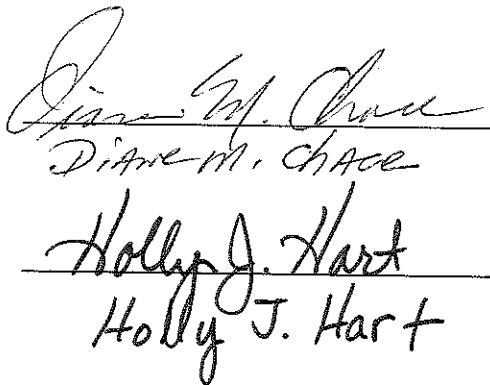 Diane M. Chace
DiANE M. CHACE
Holly J. Hart
Holly J. Hart